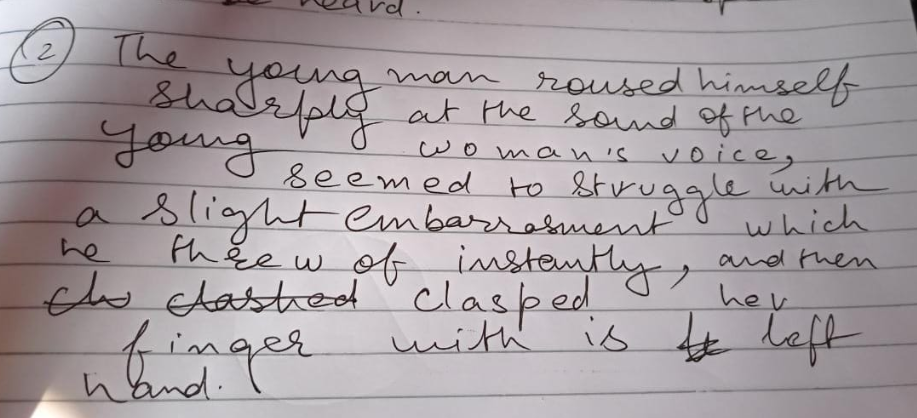 heard.
② The young man roused himself
sharply at the sound of the
young woman's voice,
seemed to struggle with
a slight embarrasment which
he threw of instantly, and then
clashed clasped her
finger with is left
hand.